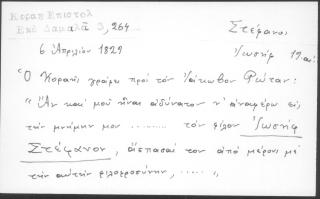 Κοραῆ Ἐπιστολ
Ἐκδ Δαμαλᾶ 3, 264
Στέφανος
Ἰωσὴφ 19 αἰ.
6 Ἀπριλίου 1829
Ὁ Κοραῆς γράφει πρὸς τὸν Ἰάκωβον Ρώταν:
"Ἂν καὶ μοῦ ἦναι ἀδύνατον ν' ἀναφέρω εἰς
τὴν μνήμην μου .......... τὸν φίλον Ἰωσὴφ
Στέφανον, ἀσπασαί τον ἀπὸ μέρους μὲ
τὴν αὐτὴν φιλοφροσύνην, ....."